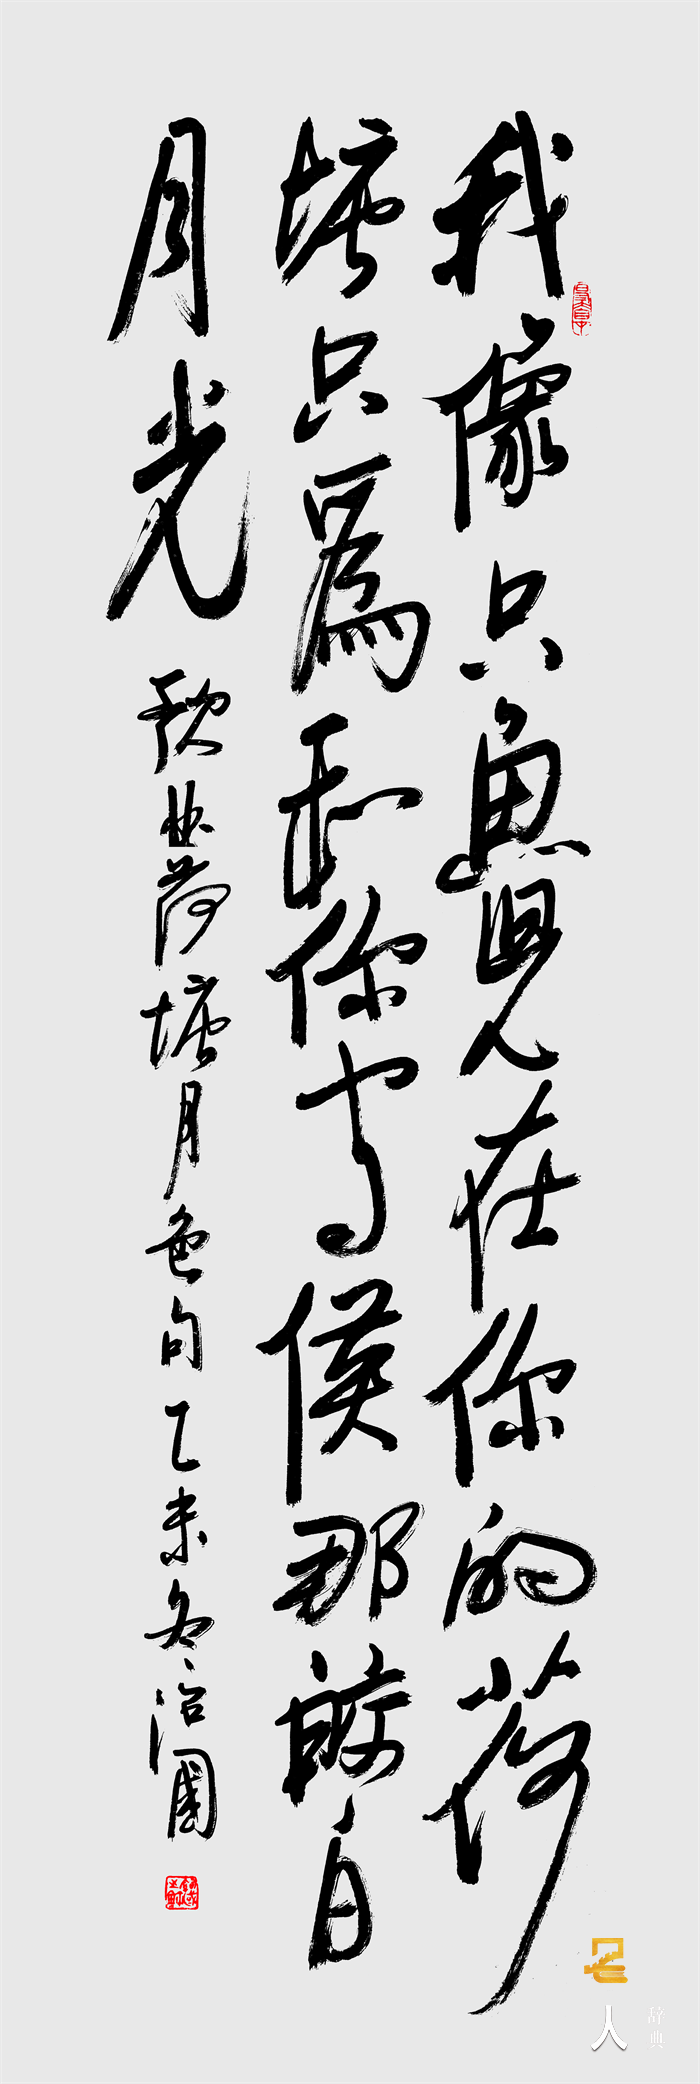 我像只魚兒在你的荷
塘只爲和你守候那皎白
月光
歌曲荷塘月色句乙未冬治國
人
辞典